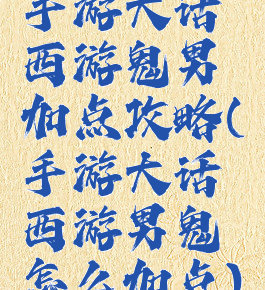 手游大话
西游鬼男
加点攻略(
手游大话
西游男鬼
怎么加点)